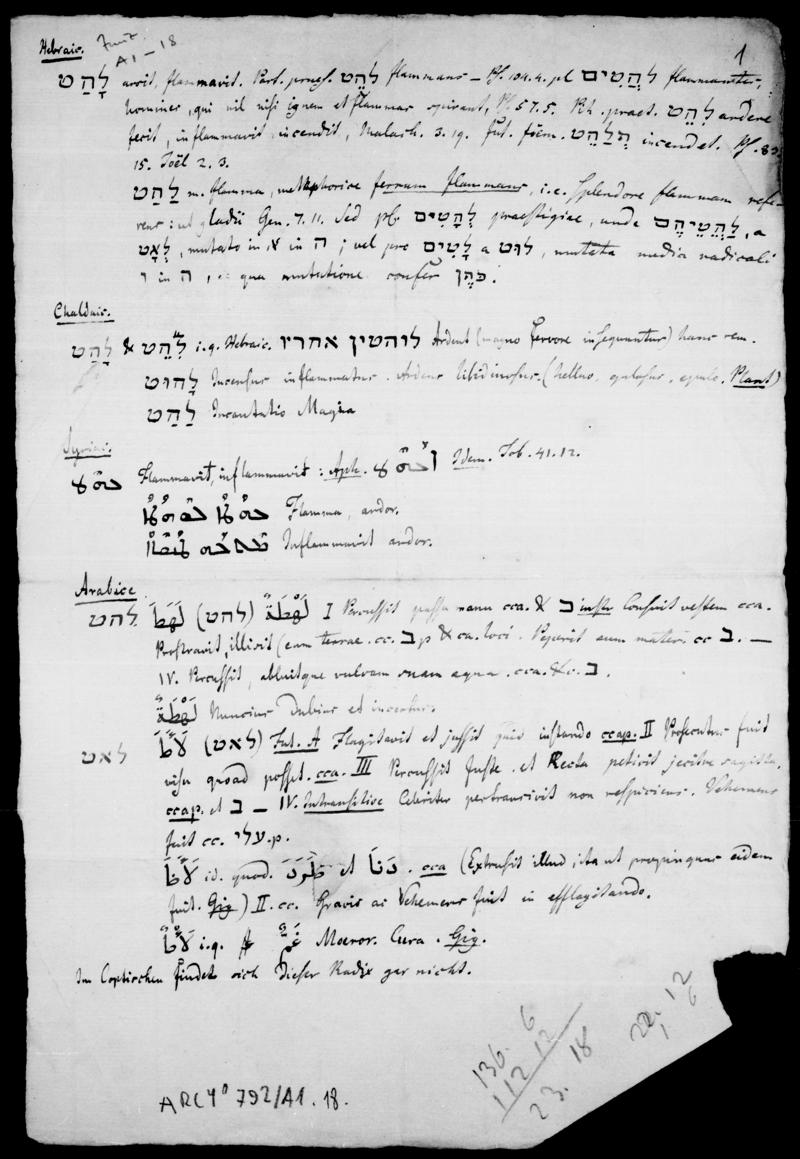 Hebraic.
A1-18
1
לָהַט arsit, flammavit. Part. praes. לֹהֵט flammans – Ps. 104.4. pl לֹהֲטִים flammantes,
homines, qui nil nisi ignem et flammas spirant, Ps. 57.5. Ph. praet. לִהֵט ardere
fecit, inflammavit, incendit, Malach. 3.19. fut. foem. תְּלַהֵט incendet. Ps. 83
15. Joël 2.3.
לַהַט m. flamma, metaphorice ferrum flammans, i.e. splendore flammam refe-
rens: ut gladii Gen. 7.11. Sed pl. לְהָטִים praestigiae, unde לַהֲטֵיהֶם, a
לָאַט, mutato in א in ה; vel pro לָטִים a לוּט, mutata media radicali
ו in ה, qua mutatione confer כֹּהֵן.
Chaldaic.
לָהַט & לַהֵט i.q. Hebraic. לוהטין אחריו Ardent (magno fervore insequuntur) hanc rem.
לָהוּט Incensus inflammatus. Ardens libidinosus. (helluo, gulosus, epulo. Plant)
לַהַט Incantatio Magica
Syriac.
Flammavit, inflammavit: Aph. Idem. Job. 41.12.
Flamma, ardor.
Inflammavit ardor.
Arabice
להט لَهَطَ (להט) لَهْطَةً I Percussit passa manu cca. & ב Consuit vestem cca.
Prostravit, illisit (eam terrae. cc. ב p & ca. loci. Peperit eum mater: cc ב. –
IV. Percussit, abluitque vulvam suam aqua. cca. & c. ב.
لَهْطَةٌ Nuncius dubius et incertus.
לאט لَأَظَ (לאט) Fut. A Flagitavit et jussit instando ccap. II Prosecutus fuit
visu quoad posset. cca. III Percussit fuste et Recta petivit jecitve sagitta.
ccap. et ב – IV. Intransitive Celeriter pertransivit non respiciens. Vehemens
fuit cc. עלי p.
id. quod. et دَنَا. cca (Extrusit illud, ita ut propinquus eidem
fuit. Gig) II. cc. Gravis ac Vehemens fuit in efflagitando.
i.q. غَمٌّ Moeror. Cura. Gig.
Im Coptischen findet sich dieser Radix gar nicht.
136. 6
112 12
23. 18
12
6
ARC 4° 792/A1.18.